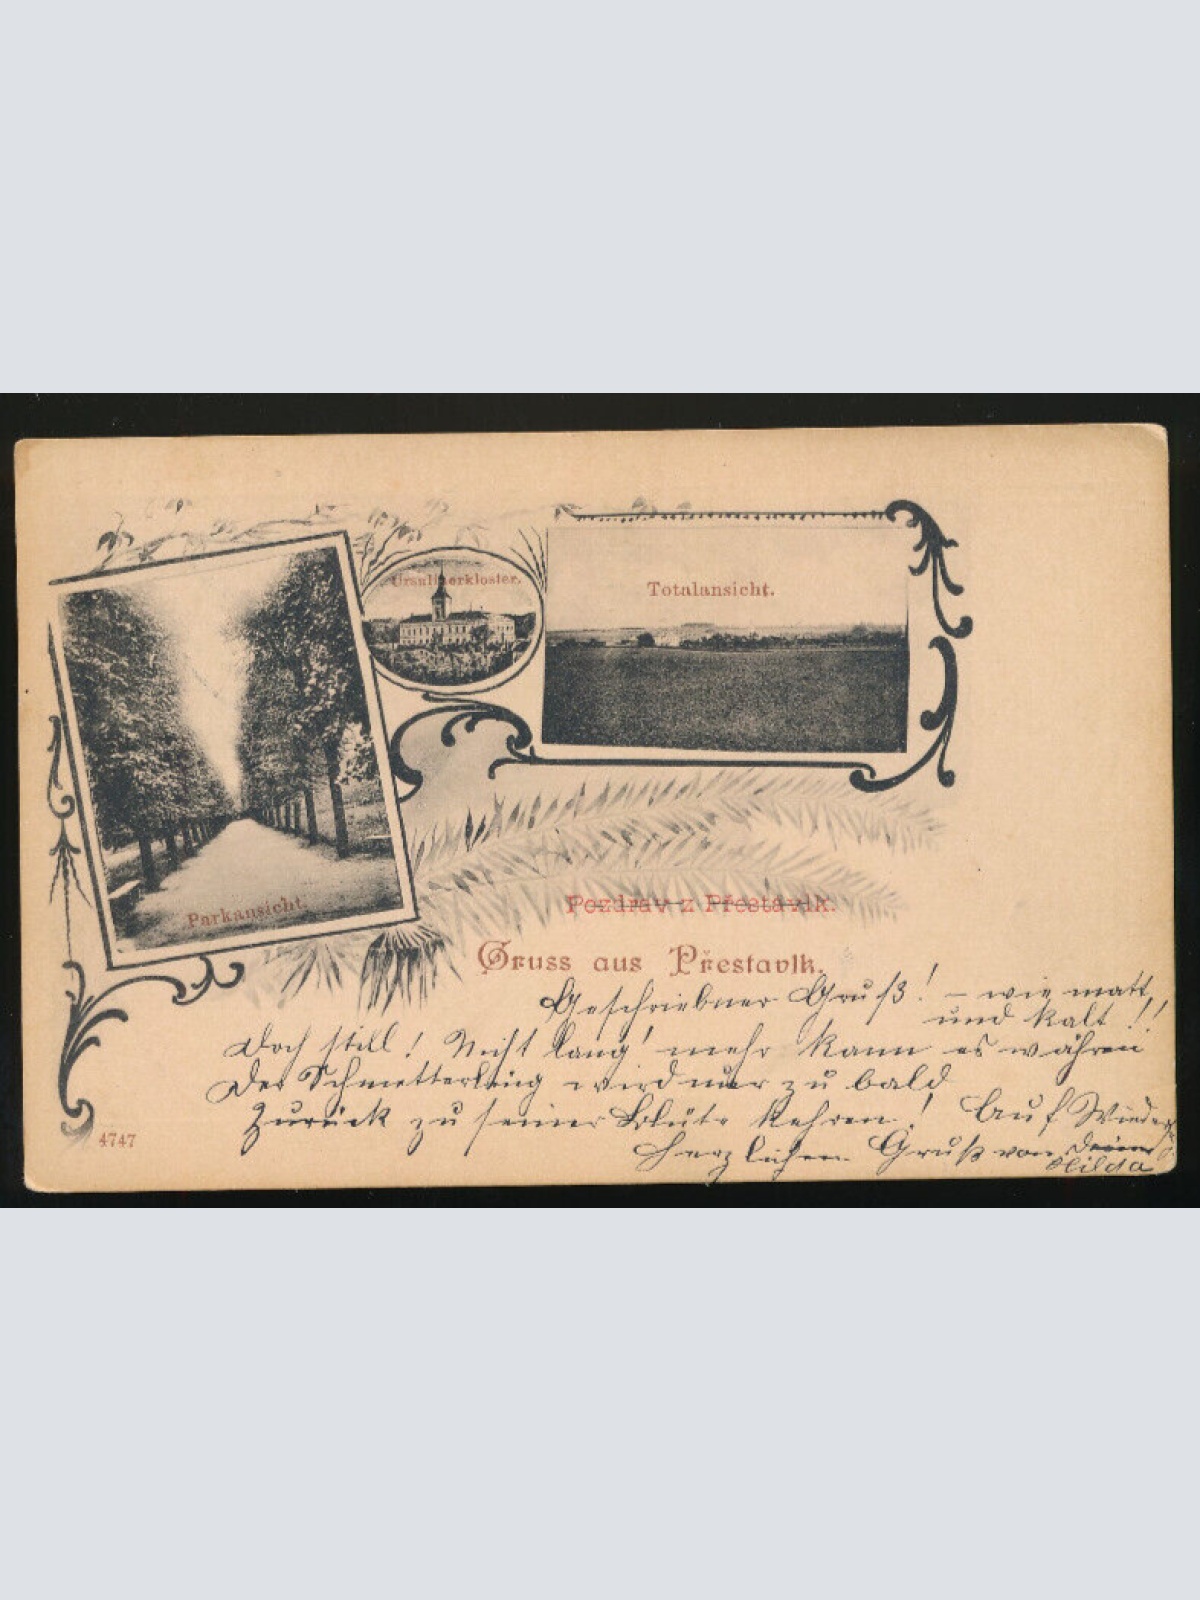 Ursulinerkloster.
Totalansicht.
Parkansicht.
Pozdrav z Přestavlk.
Gruss aus Přestavlk.
Geschriebner Gruß! – wie matt
und kalt!!
Doch still! Nicht lang' mehr kann es währen
Der Schmetterling wird nur zu bald
Zurück zu seiner Blüte kehren! Auf Wieder
Herzlichen Gruß von
Hilda
4747